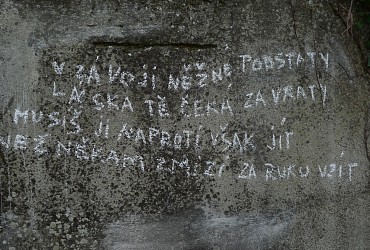 V ZÁVOJI NĚŽNÉ PODSTATY
LÁSKA TĚ ČEKÁ ZA VRATY
MUSÍŠ JI NAPROTI VŠAK JÍT
NEŽ NĚKAM ZMIZÍ ZA RUKU VZÍT